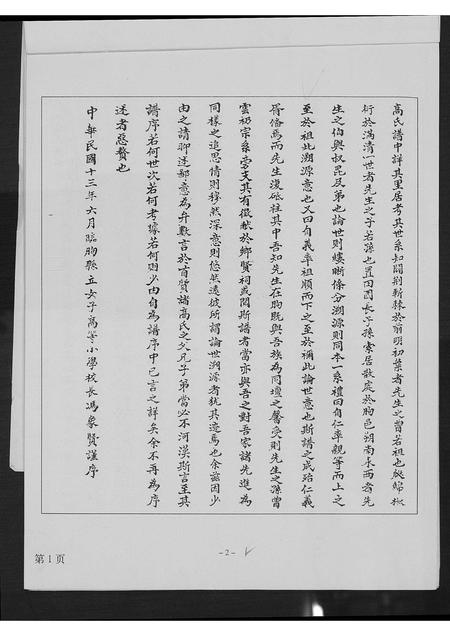 高氏譜中詳其里居考其世系知闢荆斬棘於前明初葉者先生之曾若祖也綖緜椒
衍於滿清一世者先生之子若孫也置田園長子孫索居散處於朐邑朔南東西者先
生之伯與叔昆及弟也論世則縷晰條分溯源則同本一系禮曰自仁率親等而上之
至於祖此溯源意也又曰自義率祖順而下之至於禰此論世意也斯譜之成殆仁義
胥備焉而先生復砥柱其中吾知先生在朐既與吾族為同壇之馨受則先生之孫曾
雲礽宗系旁支其有徵獻於鄉賢祠或閱斯譜者當亦與吾之對吾家諸先進為
同樣之追思情則穆然深意則悠然遠彼所謂論世溯源者猶其迹焉也余茲因少
由之請聊述鄙意為弁數言於首質諸高氏之父兄子弟當必不河漢斯言至其
譜序若何世次若何考據若何則少由自為譜序中已言之詳矣余不再為序
述者惡贅也
中華民國十三年六月臨朐縣立女子高等小學校長馮象賢謹序
-2-
第1页